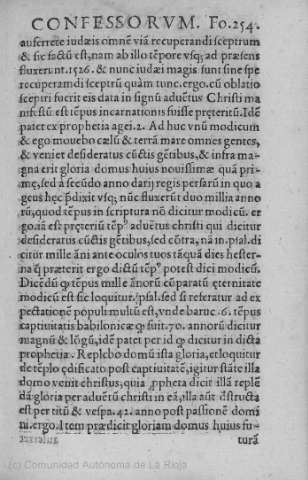 CONFESSORVM. Fo.254.
auferrete iudæis omnē viā recuperandi sceptrum
& sic factū est, nam ab illo tēpore vsq; ad præsens
fluxerunt.1526. & nunc iudæi magis sunt sine spe
recuperandi sceptrū quàm tunc. ergo. cū oblatio
sceptri fuerit eis data in signū aduētus Christi ma
nifestū est tēpus incarnationis fuisse prēteritū. Idē
patet ex prophetia agei.2. Ad huc vnū modicum
& ego mouebo cælū & terrā mare omnes gentes,
& veniet desideratus cūctis gētibus, & infra ma-
gna erit gloria domus huius nouissimæ quā pri-
mę, sed à secūdo anno darij regis persarū in quo a
geus hęc p̄dixit vsq; nūc fluxerūt duo millia anno
rū, quod tēpus in scriptura nō dicitur modicū. er
go. iā est pręteriū tēpꝰ aduētus christi qui dicitur
desideratus cūctis gētibus, sed cōtra, nā in.psal.di
citur mille āni ante oculos tuos tāquā dies hester-
na q̄ præterit ergo dictū tēpꝰ potest dici modicū.
Dicēdū ꝙ tēpus mille ānorū cūparatū ęternitate
modicū est sic loquitur.psal.sed si referatur ad ex
pectationē populi multū est, vnde baruc.6. tēpus
captiuitatis babilonicæ ꝙ fuit.70. annorū dicitur
magnū & lōgū, idē patet per id ꝙ dicitur in dicta
prophetia. Replebo domū ista gloria, et loquitur
de tēplo ędificato post captiuitatē, igitur stāte illa
domo venit christus, quia ꝓpheta dicit illā replē
dā gloria per aduētū christi in eā, illa aūt dstructa
est per titū & vespa.42. anno post passionē domi
ni. ergo. Item prædicit gloriam domus huius fu-
turā
(c) Comunidad Autónoma de La Rioja